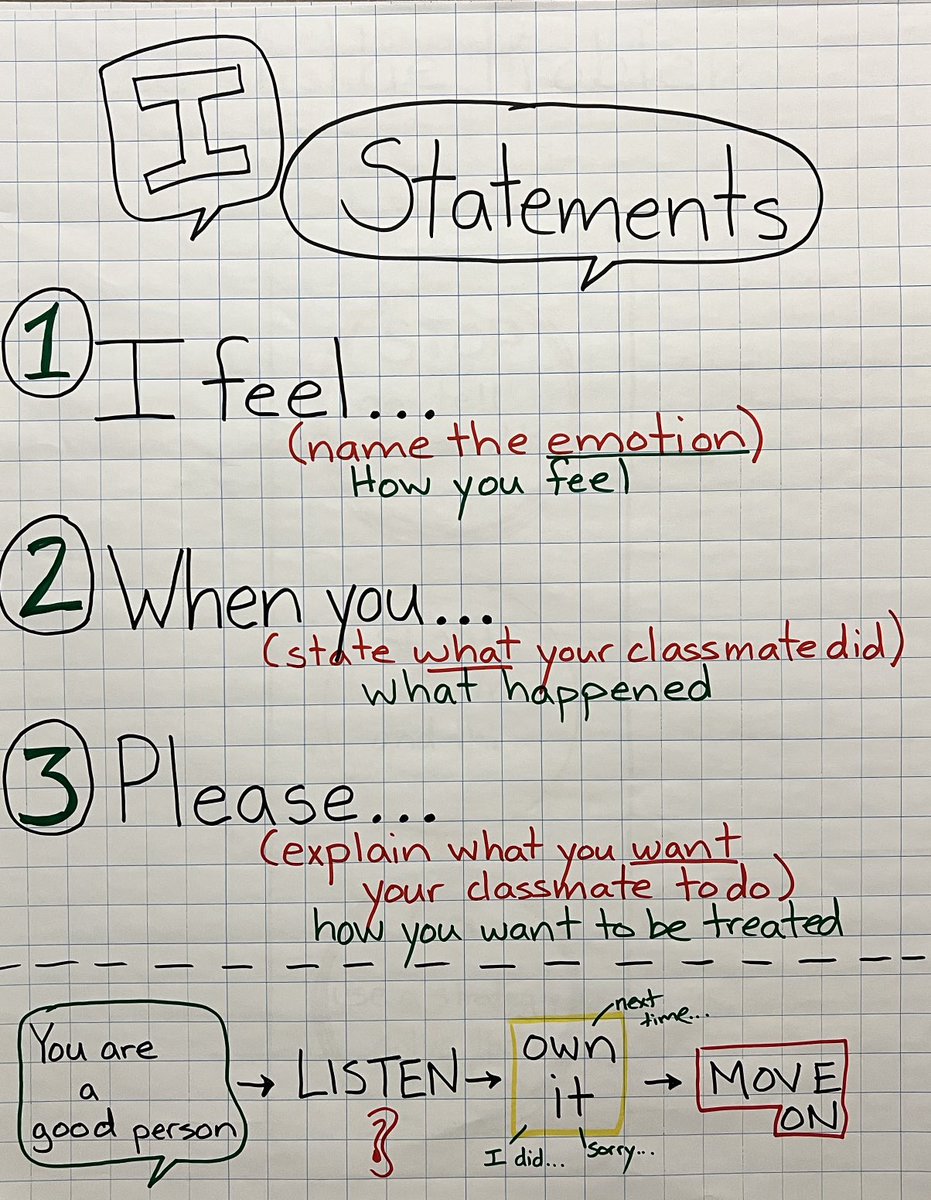 I
Statements
1 I feel...
(name the emotion)
How you feel
2 When you...
(state what your classmate did)
what happened
3 Please...
(explain what you want
your classmate to do)
how you want to be treated
You are
a
good person
→ LISTEN →
next
time...
own
it
I did...
sorry...
→ MOVE
ON